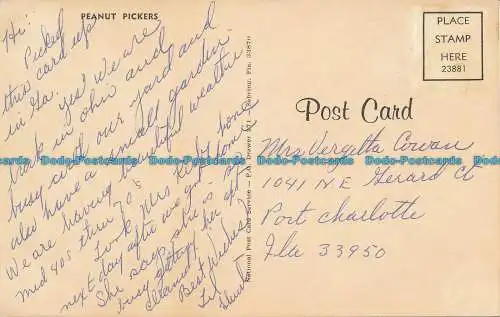 PEANUT PICKERS
Hi!
Picked
this card up
in Ga.
yes! We are
back in Ohio and
busy with our yard and
also have a small garden.
We are having beautiful weather
mid 40s thru 70's
Took Mrs Kirby home
next day after we got home
She says she is
busy getting her apt
cleaned
Best Wishes
National Post Card Service - P.O. Drawer 521 - Fla. 33870
PLACE
STAMP
HERE
23881
Post Card
Mrs Vergetta Cowan
1041 N.E Gerard Ct
Port Charlotte
Fla 33950
Dodo-Postcards Dodo-Postcards Dodo-Postcards Dodo-Postcards Dodo-Postcards